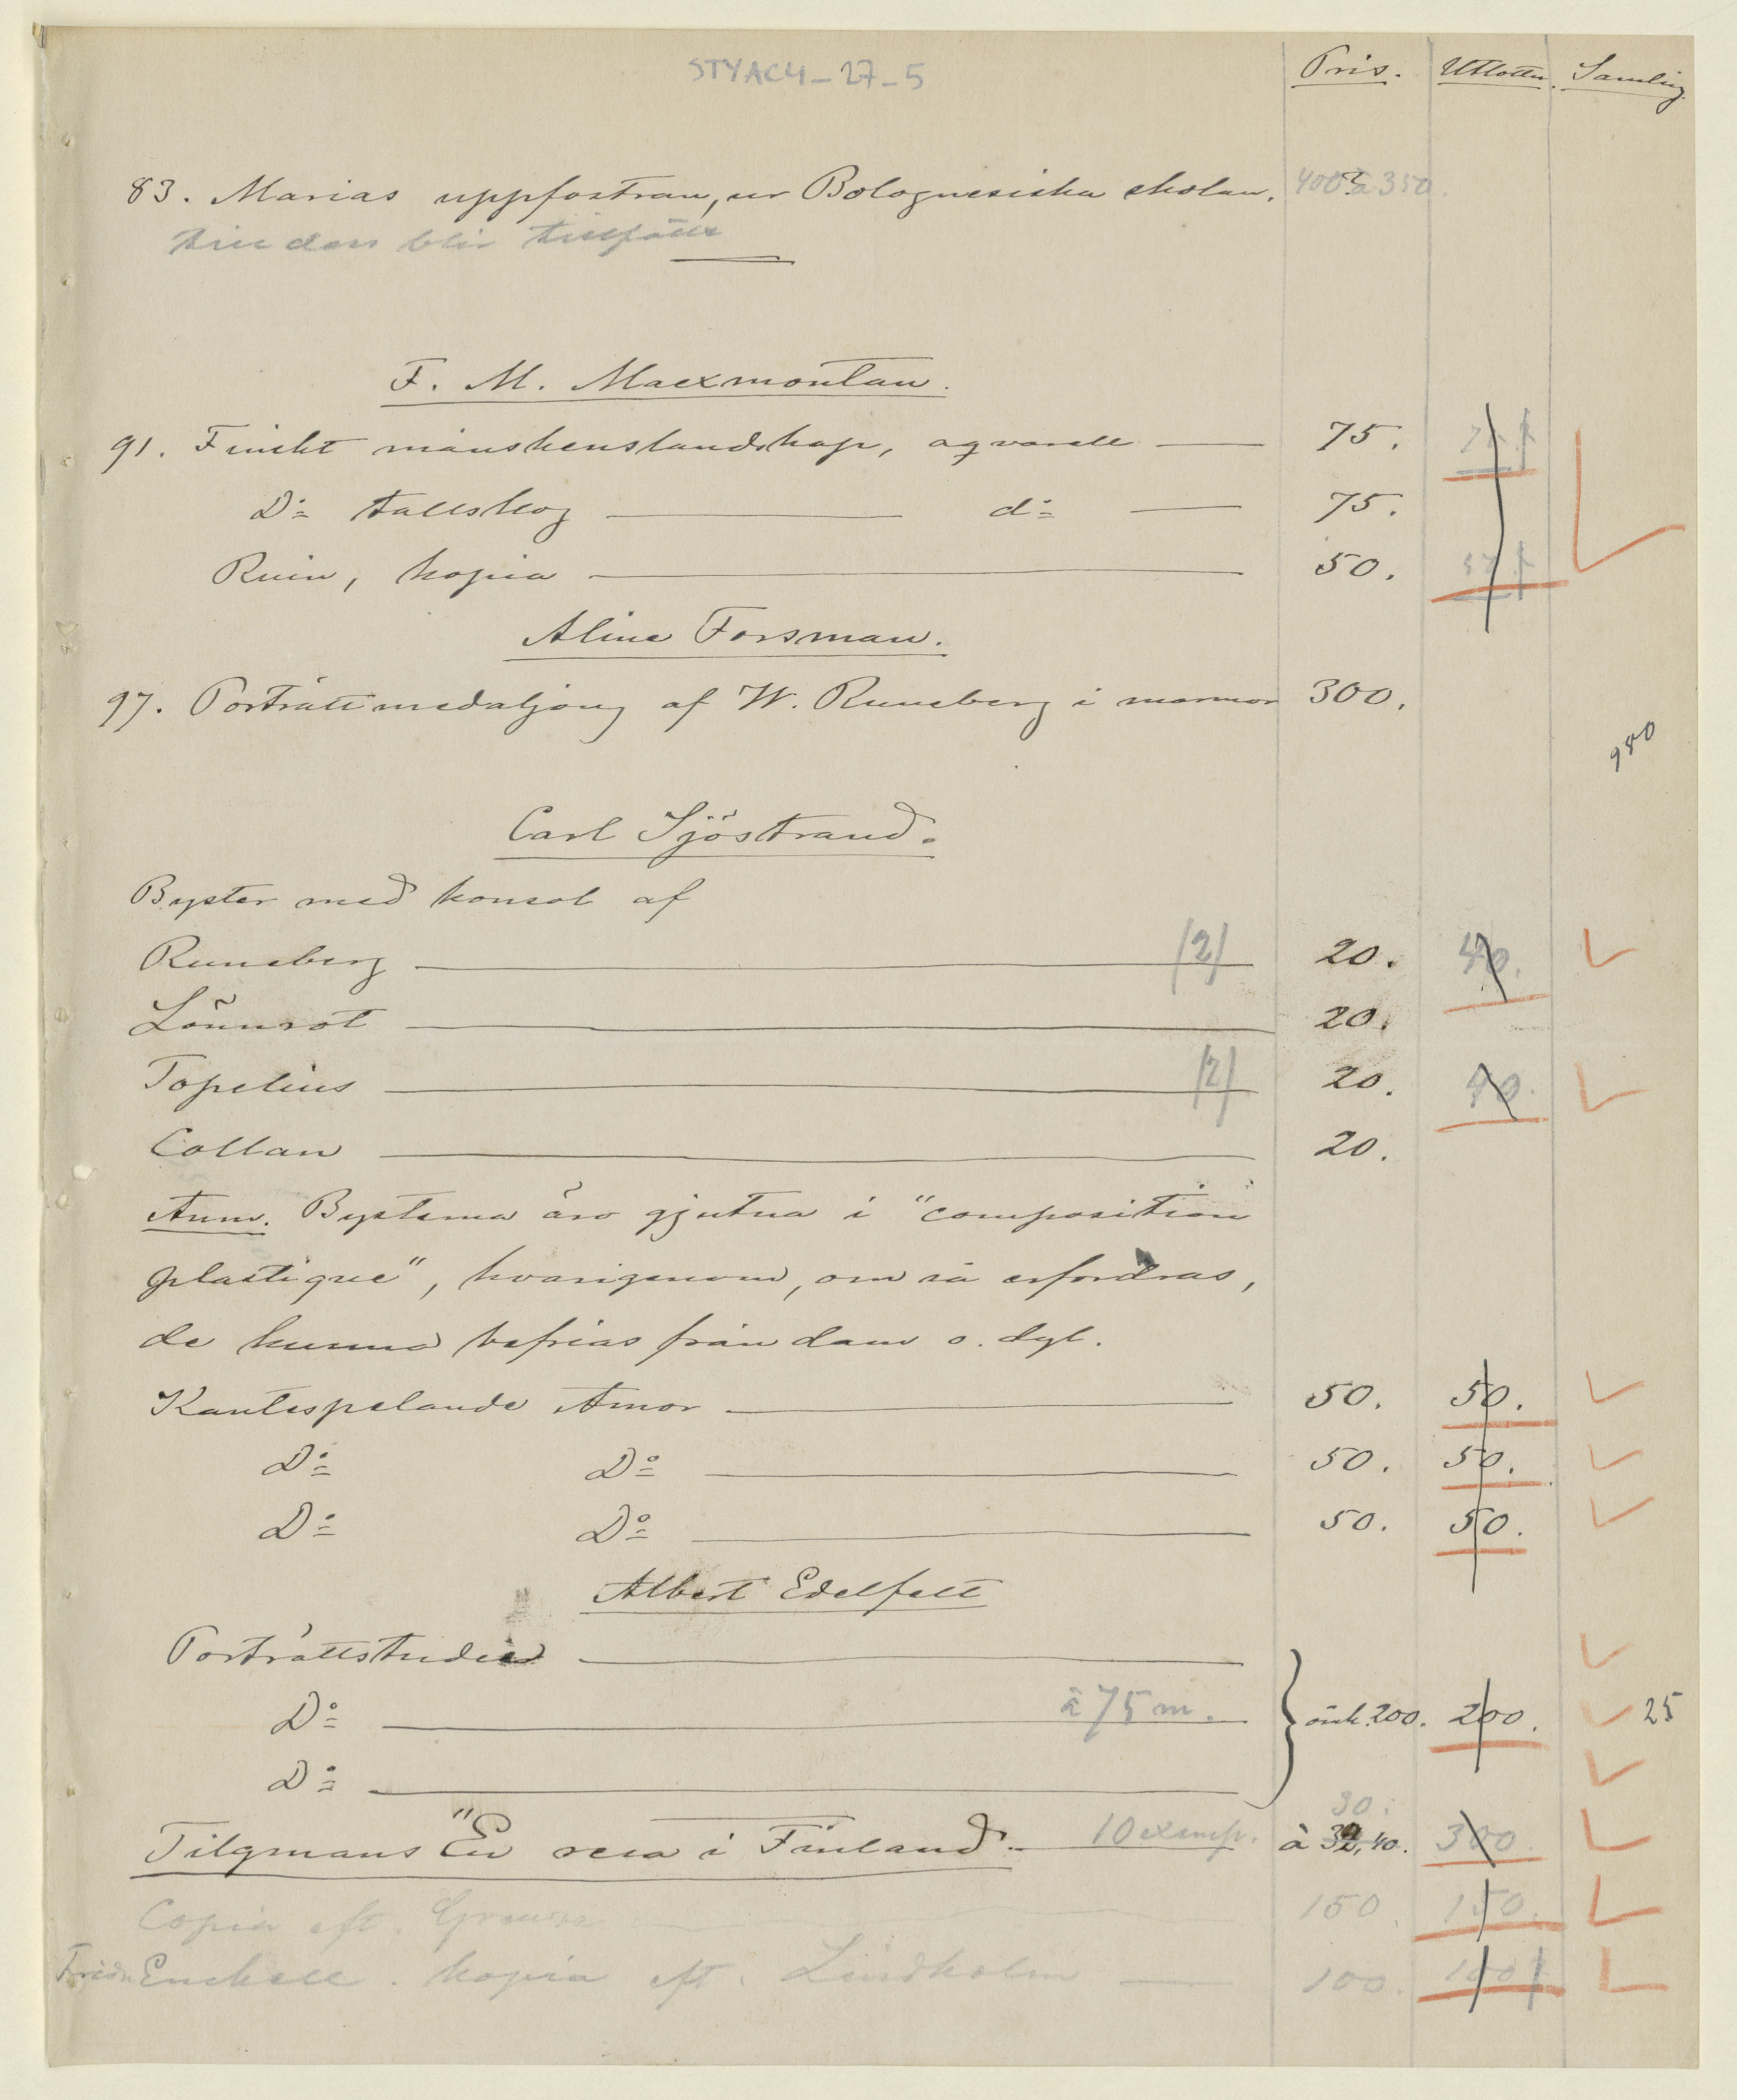 STYAC4_27_5
Pris. Utlottn. Samling.
83. Marias uppfostran, ur Bolognesiska skolan. 400 à 350.
blir
F. M. Maexmontan.
91. Finskt månskenslandskap, aqvarell — 75. 75.
Do tallskog — do — 75.
Ruin, kopia — 50.
Alina Forsman.
97. Porträttmedaljong af W. Runeberg i marmor 300.
980
Carl Sjöstrand.
Byster med konsol af
Runeberg — (2) 20. 40.
Lönnrot — 20.
Topelius — (2) 20. 40.
Collan — 20.
Anm. Bysterna äro gjutna i "composition
plastique", hvarigenom, om så erfordras,
de kunna befrias från dam o. dyl.
Kantelespelande Amor — 50. 50.
Do Do — 50. 50.
Do Do — 50. 50.
Albert Edelfelt
Porträttstudie —
Do — à 75 m. önsk. 200. 200. 25
Do —
30.
Tilgmans "En resa i Finland. — 10 exempl. à 32,40. 300.
Copia eft. Greuze — 150. 150.
Enckell. kopia eft. Lindholm — 100. 100